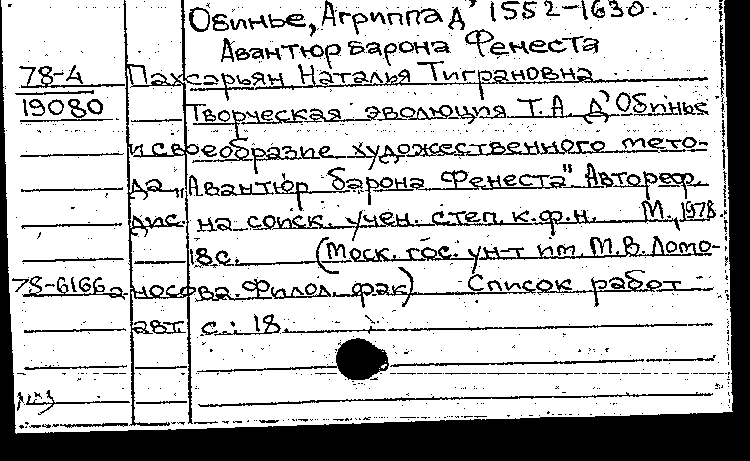 Обинье, Агриппа д' 1552-1630.
Авантюр барона Фенеста
78-4 Пахсарьян Наталья Тиграновна
19080 Творческая эволюция Т.А. д'Обинье
и своеобразие художественного мето-
да „Авантюр барона Фенеста" Автореф.
дис. на соиск. учен. степ. к.ф.н. М., 1978.
18с. (Моск. гос. ун-т им. М.В. Ломо-
78-6166а носова. Филол. фак) Список работ
авт с.: 18.